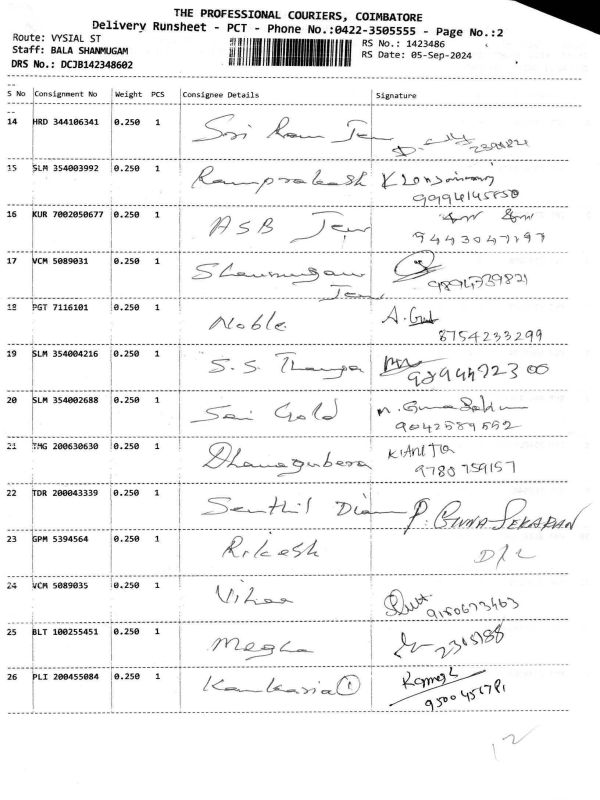 THE PROFESSIONAL COURIERS, COIMBATORE
Delivery Runsheet - PCT - Phone No.:0422-3505555 - Page No.:2
Route: VYSIAL ST
RS No.: 1423486
Staff: BALA SHANMUGAM
RS Date: 05-Sep-2024
DRS No.: DCJB142348602
S No Consignment No Weight PCS Consignee Details Signature
14 HRD 344106341 0.250 1 Sri Ram Jew
15 SLM 354003992 0.250 1 Ramprakash
16 KUR 7002050677 0.250 1 ASB Jew
9443047197
17 VCM 5089031 0.250 1 Shanmugam
Jew 9894739821
18 PGT 7116101 0.250 1 Noble A.
8754233299
19 SLM 354004216 0.250 1 S.S. Thanga
20 SLM 354002688 0.250 1 Sai Gold
9042589552
21 TMG 200630630 0.250 1
9780759157
22 TDR 200043339 0.250 1 Senthil Diam P. GUNA SEKARAN
23 GPM 5394564 0.250 1 Rikesh
24 VCM 5089035 0.250 1
9150673463
25 BLT 100255451 0.250 1 Megha
26 PLI 200455084 0.250 1 Kankaria 1
12